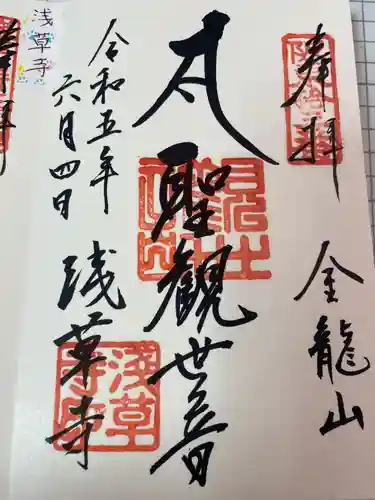 奉拝
金龍山
大聖観世音
令和五年
六月四日
浅草寺
浅草寺
浅草寺
奉拝